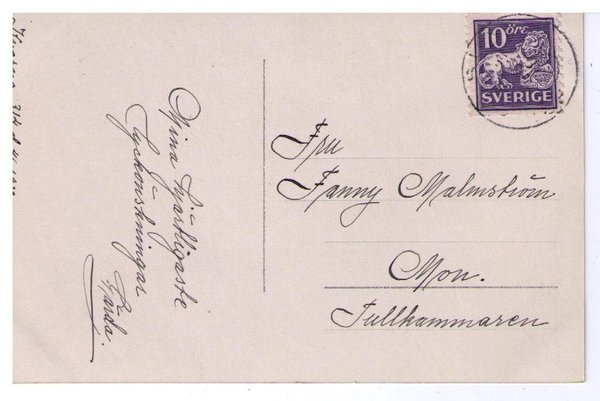 10 öre
SVERIGE
Mina hjärtligaste
lyckönskningar
Gärda.
Fru
Fanny Malmström
Mon.
Tullkammaren